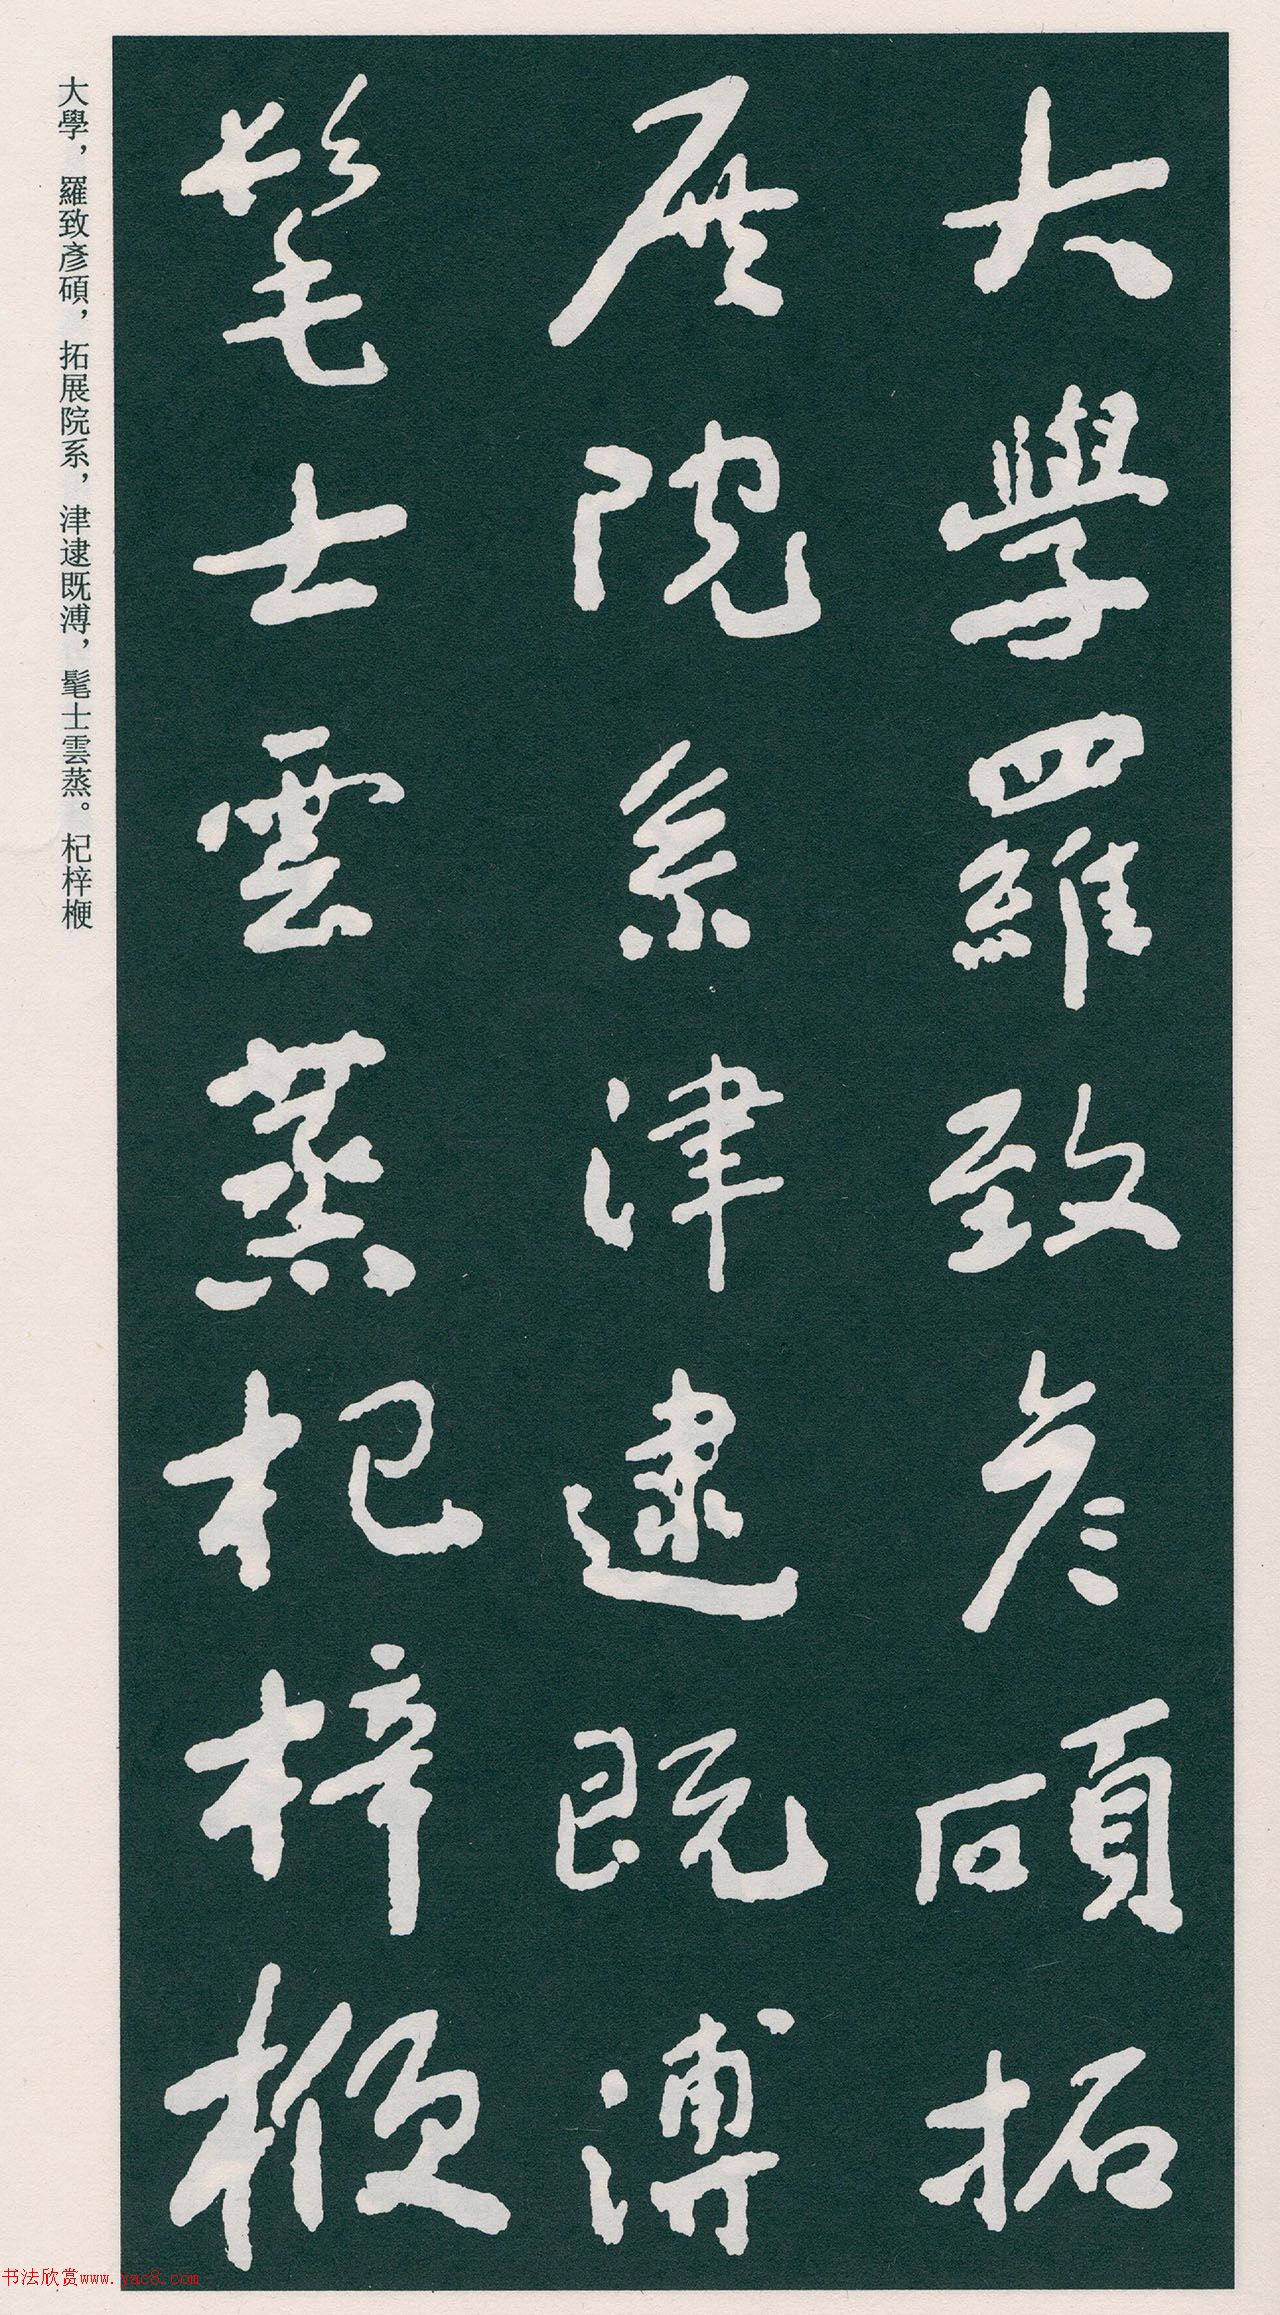 大學羅致彥碩拓
展院系津逮既溥
髦士雲蒸杞梓楩
大學，羅致彥碩，拓展院系，津逮既溥，髦士雲蒸。杞梓楩
书法欣赏www.yac8.com